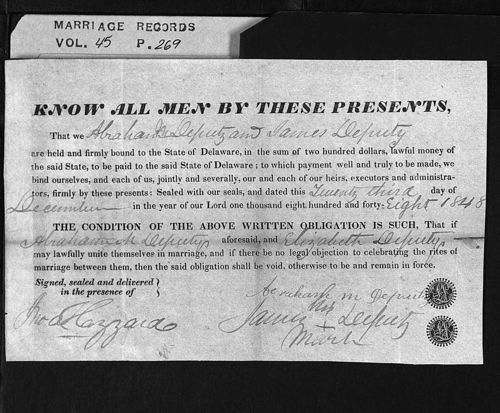 MARRIAGE RECORDS
VOL. 45 P. 269
KNOW ALL MEN BY THESE PRESENTS,
That we Abraham Deputy and James Deputy
are held and firmly bound to the State of Delaware, in the sum of two hundred dollars, lawful money of
the said State, to be paid to the said State of Delaware ; to which payment well and truly to be made, we
bind ourselves, and each of us, jointly and severally, our and each of our heirs, executors and administra-
tors, firmly by these presents: Sealed with our seals, and dated this Twenty third day of
December in the year of our Lord one thousand eight hundred and forty-Eight 1848
THE CONDITION OF THE ABOVE WRITTEN OBLIGATION IS SUCH, That if
Abraham M Deputy aforesaid, and Elizabeth Deputy
may lawfully unite themselves in marriage, and if there be no legal objection to celebrating the rites of
marriage between them, then the said obligation shall be void, otherwise to be and remain in force.
Signed, sealed and delivered
in the presence of
Abraham M Deputy
his
Hazzard James + Deputy
Mark